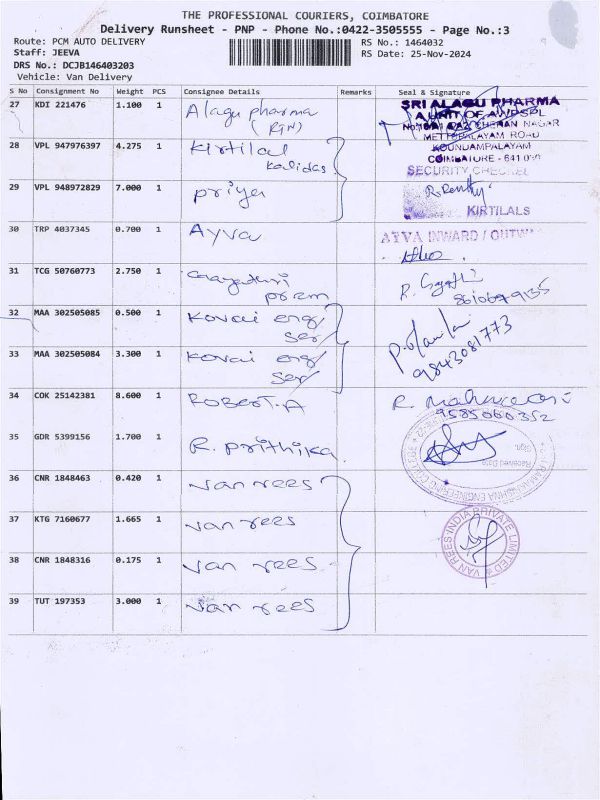 THE PROFESSIONAL COURIERS, COIMBATORE
Delivery Runsheet - PNP - Phone No.:0422-3505555 - Page No.:3
Route: PCM AUTO DELIVERY RS No.: 1464032
Staff: JEEVA RS Date: 25-Nov-2024
DRS No.: DCJB146403203
Vehicle: Van Delivery
S No Consignment No Weight PCS Consignee Details Remarks Seal & Signature
27 KDI 221476 1.100 1 Alagu pharma
(RGN)
SRI ALAGU PHARMA
A UNIT OF AWPSPL
NAGAR
METTUPALAYAM ROAD
KOUNDAMPALAYAM
COIMBATORE - 641 030
28 VPL 947976397 4.275 1 Kirtilal
Kalidas
SECURITY CHECKED
29 VPL 948972829 7.000 1 priya
KIRTILALS
30 TRP 4037345 0.700 1 Ayva
AYVA INWARD / OUTW
31 TCG 50760773 2.750 1 Gayathri
prem
32 MAA 302505085 0.500 1 Kovai eng
Ser
33 MAA 302505084 3.300 1 Kovai eng
Ser
9843081773
34 COK 25142381 8.600 1 Robert.A
9585060352
35 GDR 5399156 1.700 1 R. prithika
ENGINEERING COLLEGE
Sign.
Received Date
36 CNR 1848463 0.420 1 van rees
37 KTG 7160677 1.665 1 van rees
VAN REES INDIA PRIVATE LIMITED
38 CNR 1848316 0.175 1 van rees
39 TUT 197353 3.000 1 van rees